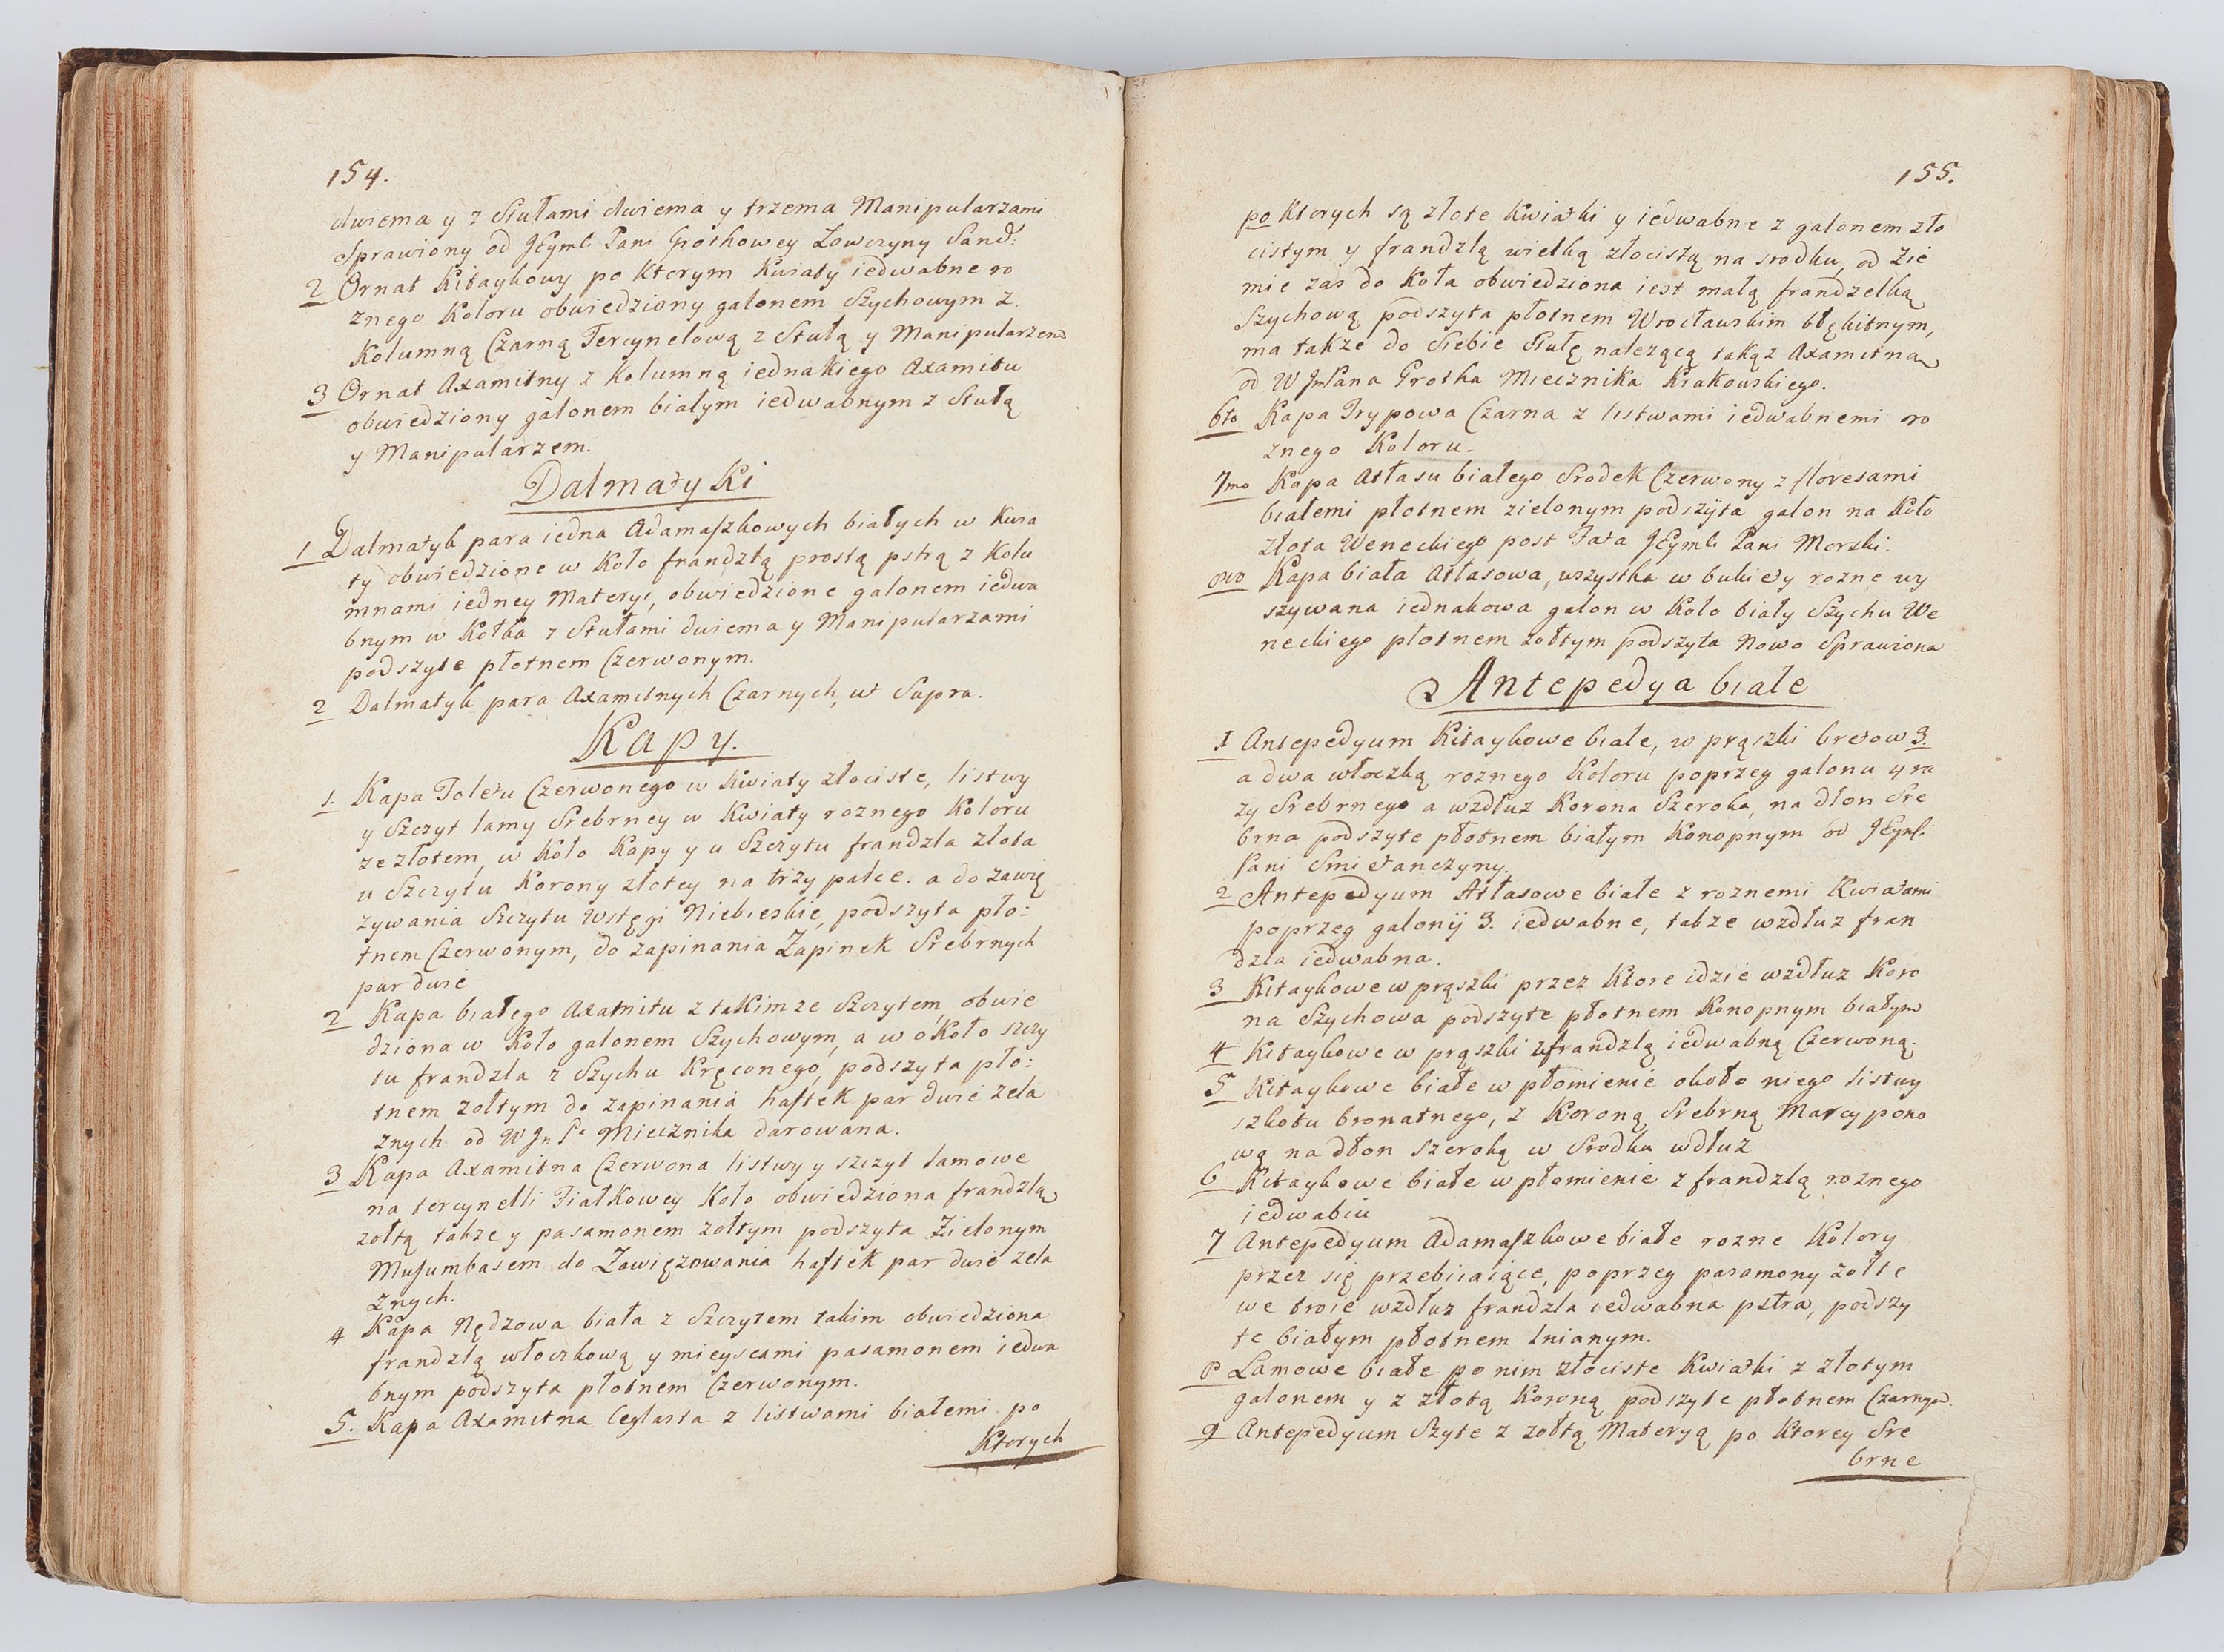 154.
dwiema y z Stułami dwiema y trzema Manipularzami
Sprawiony od JEymć Pani Grothowey Łowczyny Sand:
2 Ornat Kitaykowy po Ktorym Kwiaty iedwabne ro
znego Koloru obwiedziony galonem Szychowym z
Kolumną Czarną Tercynelową z Stułą y Manipularzem
3 Ornat Axamitny z Kolumną iednakiego Axamitu
obwiedziony galonem białym iedwabnym z Stułą
y Manipularzem.
Dalmatyki
1 Dalmatyk para iedna Adamaszkowych białych w Kwia
ty obwiedzione w Koło frandzlą prostą pstrą z Kolu
mnami iedney Materyi, obwiedzione galonem iedwa
bnym w Kołka z Stułami dwiema y Manipularzami
podszyte płotnem Czerwonym.
2 Dalmatyk para Axamitnych Czarnych, ut Supra.
Kapy.
1. Kapa Toletu Czerwonego w Kwiaty złociste, listwy
y Szczyt lamy Srebrney w Kwiaty roznego Koloru
ze złotem, w Koło Kapy y u Szczytu frandzla złota
u Szczytu Korony złotey na trzy palce. a do zawię
zywania Szczytu Wstęgi Niebieskie, podszyta pło:
tnem Czerwonym, do zapinania Zapinek Srebrnych
par dwie
2 Kapa białego Axamitu z takimze Szczytem, obwie
dziona w Koło galonem Szychowym, a w około szczy
tu frandzla z Szychu Kręconego, podszyta pło:
tnem zołtym do zapinania haftek par dwie zela
znych od W Jn Pa Miecznika darowana.
3 Kapa Axamitna Czerwona listwy y szczyt lamowe
na tercynelli Fiałkowey Koło obwiedziona frandzlą
zołtą takze y pasamonem zołtym podszyta Zielonym
Musumbasem do Zawięzowania haftek par dwie zela
znych.
4 Kapa Nędzowa biała z Szczytem takim obwiedziona
frandzlą włoczkową y mieyscami pasamonem iedwa
bnym podszyta płotnem Czerwonym.
5. Kapa Axamitna Ceglasta z listwami białemi po
Ktorych
155.
po Ktorych są złote Kwiatki y iedwabne z galonem zło
cistym y frandzlą wielką złocistą na srodku, od Zie
mie zas do Koła obwiedziona iest małą frandzelką
Szychową podszyta płotnem Wrocławskim błękitnym,
ma takze do Siebie Stułę nalezącą taką z Axamitną
od W JmPana Grotha Miecznika Krakowskiego.
6to Kapa Trypowa Czarna z listwami iedwabnemi ro
znego Koloru.
7mo Kapa Atłasu białego Srodek Czerwony z floresami
białemi płotnem zielonym podszÿta galon na Koło
złota Weneckiego post Fata JEymć Pani Morski.
8vo Kapa biała Atłasowa, wszystka w bukiety rozne wy
szywana iednakowa galon w Koło biały Szychu We
neckiego płotnem zołtym podszyta Nowo Sprawiona
Antepedya białe
1 Antepedyum Kitaykowe białe, w prąszki bretow 3.
a dwa włoczką roznego Koloru poprzeg galonu 4 ra
zy Srebrnego a wzdłuz Korona Szeroka, na dłon Sre
brna podszyte płotnem białym Konopnym od JEymć
Pani Smietanczyny.
2 Antepedyum Atłasowe białe z roznemi Kwiatami
poprzeg galonÿ 3. iedwabne, takze wzdłuz fran
dzla iedwabna.
3 Kitaykowe w prąszki przez Ktore idzie wzdłuz Koro
na Szychowa podszyte płotnem Konopnym białym
4 Kitaykowe w prąszki z frandzlą iedwabną Czerwoną.
5 Kitaykowe białe w płomienie około niego listwy
szkotu bronatnego, z Koroną Srebrną Marcypono
wą na dłon szeroką w Srodku wdłuz
6 Kitaykowe białe w płomienie z frandzlą roznego
iedwabiu
7 Antepedyum Adamaszkowe białe rozne Kolory
przez się przebiiaiące, poprzeg pasamony zołte
we troie wzdłuz frandzla iedwabna pstra, podszy
te białym płotnem lnianym.
8 Lamowe białe po nim złociste Kwiatki z złotym
galonem y z złotą Koroną podszyte płotnem Czarnym.
9 Antepedyum Szyte z zołtą Materyą po Ktorey Sre
brne